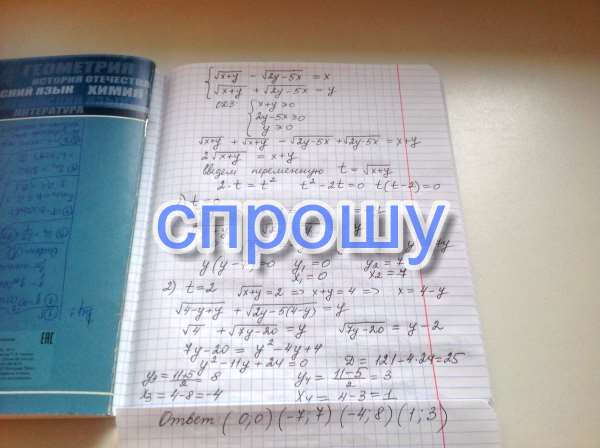 ГЕОМЕТРИЯ
ИСТОРИЯ ОТЕЧЕСТВА
СКИЙ ЯЗЫК ХИМИЯ
ЛИТЕРАТУРА
EAC
√x+y - √2y-5x = x
√x+y + √2y-5x = y
ОДЗ x+y>0
2y-5x≥0
y>0
√x+y + √x+y - √2y-5x + √2y-5x = x+y
2√x+y = x+y
Введем переменную t = √x+y
2·t = t² t²-2t=0 t(t-2)=0
спрошу
y₁=0 y₂=7
x₁=0 x₂=7
2) t=2 √x+y=2 => x+y=4 => x=4-y
√4-y+y + √2y-5(4-y) = y
√4 + √7y-20 = y √7y-20 = y-2
7y-20 = y²-4y+4
y²-11y+24=0 D=121-4·24=25
y₃=11+5/2 8 y₄=11-5/2=3
x₃=4-8=-4 x₄=4-3=1
Ответ (0,0) (-7;7) (-4;8) (1;3)